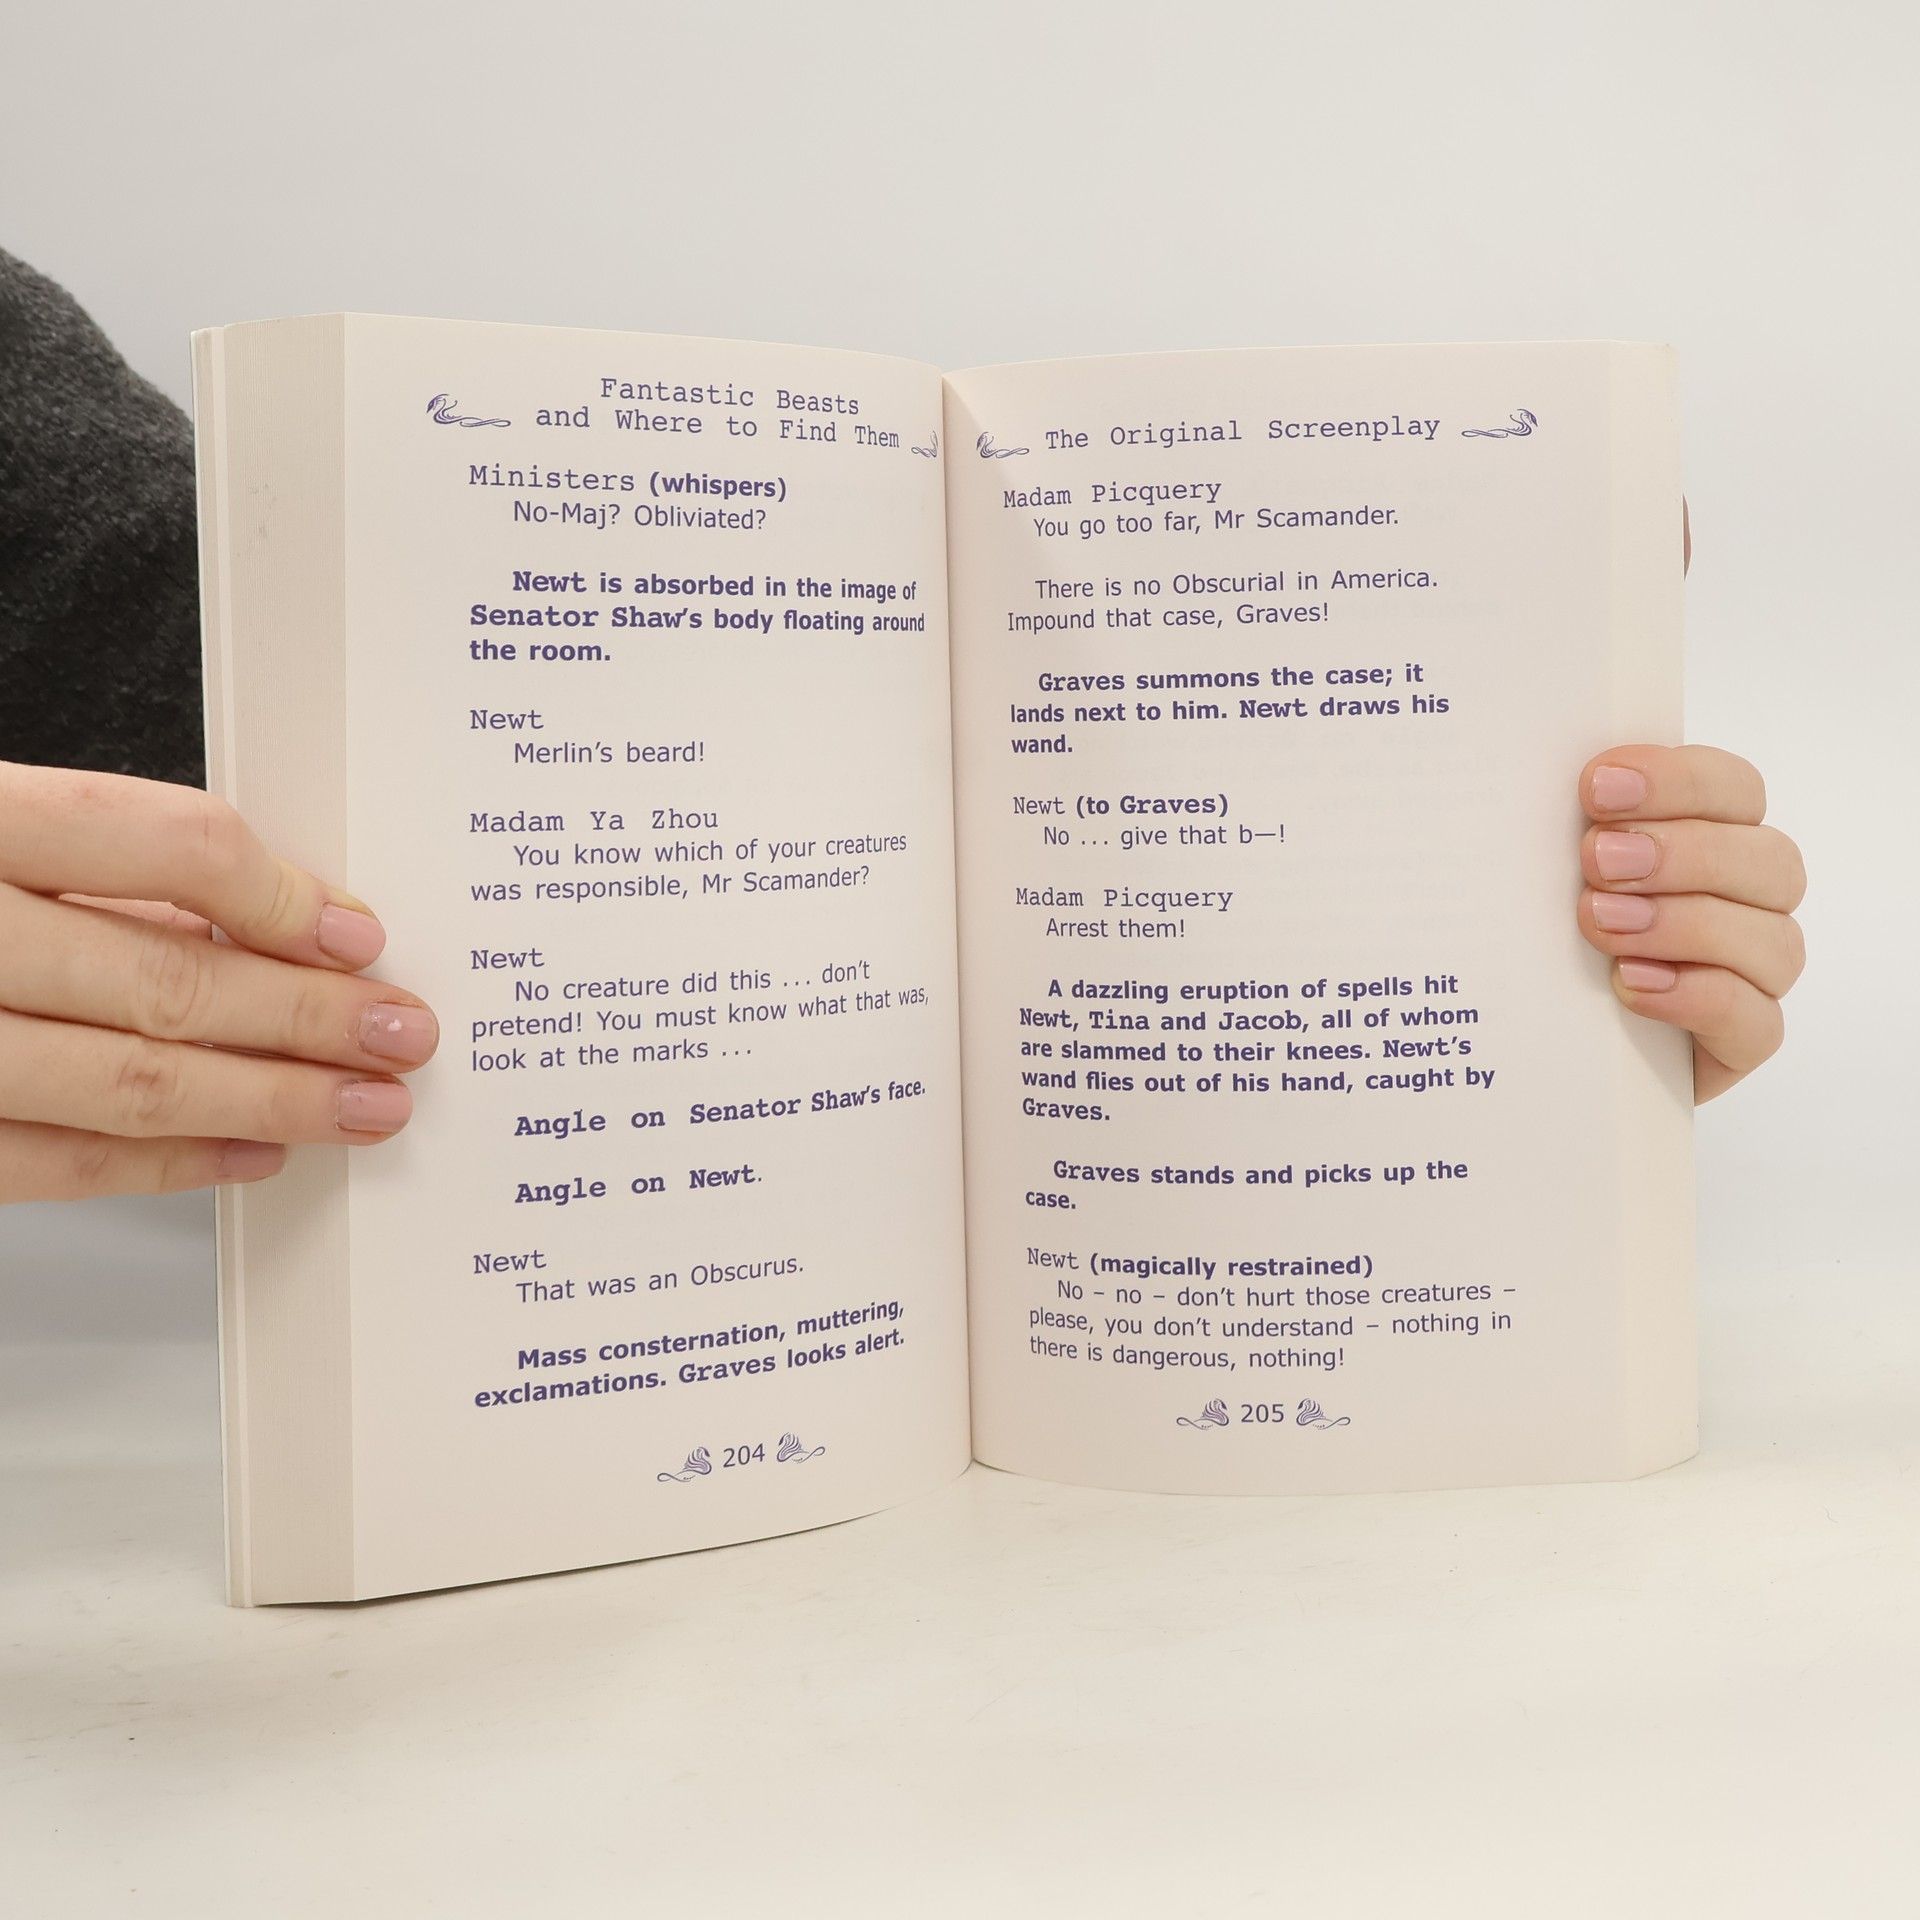 Fantastic Beasts
and Where to Find Them
Ministers (whispers)
No-Maj? Obliviated?
Newt is absorbed in the image of
Senator Shaw's body floating around
the room.
Newt
Merlin's beard!
Madam Ya Zhou
You know which of your creatures
was responsible, Mr Scamander?
Newt
No creature did this ... don't
pretend! You must know what that was,
look at the marks ...
Angle on Senator Shaw's face.
Angle on Newt.
Newt
That was an Obscurus.
Mass consternation, muttering,
exclamations. Graves looks alert.
204
The Original Screenplay
Madam Picquery
You go too far, Mr Scamander.
There is no Obscurial in America.
Impound that case, Graves!
Graves summons the case; it
lands next to him. Newt draws his
wand.
Newt (to Graves)
No ... give that b—!
Madam Picquery
Arrest them!
A dazzling eruption of spells hit
Newt, Tina and Jacob, all of whom
are slammed to their knees. Newt's
wand flies out of his hand, caught by
Graves.
Graves stands and picks up the
case.
Newt (magically restrained)
No – no – don't hurt those creatures –
please, you don't understand – nothing in
there is dangerous, nothing!
205